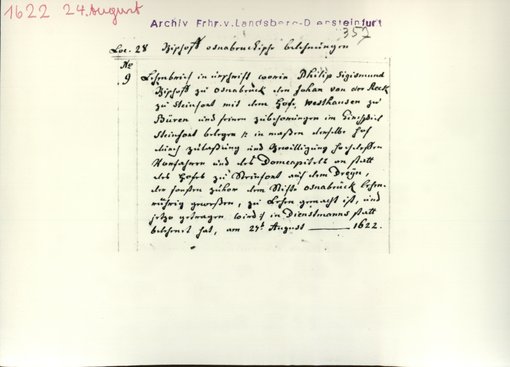 1622 24. August
Archiv Frhr. v. Landsberg-Drensteinfurt
357
Loc. 28 Bischöfl osnabruckische belehnungen
No
9 Lehnbrief in urschrift worin Philip Sigismund
Bischoff zu Osnabrück den Johan von der Reck
zu Steinfort mit dem Hofe Westhausen zu
Büren und seinen zubehörungen im Kirchspiel
Steinfort belegen /: in maßen derselbe Hof
durch zulaßung und Bewilligung
Vorfahren und des Domcapitels an statt
des Hofes zu Steinfort auf dem Drein,
der sonsten zuhor dem Stifte Osnabrück lehn-
rührig gewesen, zu Lehn gemacht ist, und
jetzo getragen wird :/ in Dienstmanns statt
belehnet hat, am 24t August 1622.